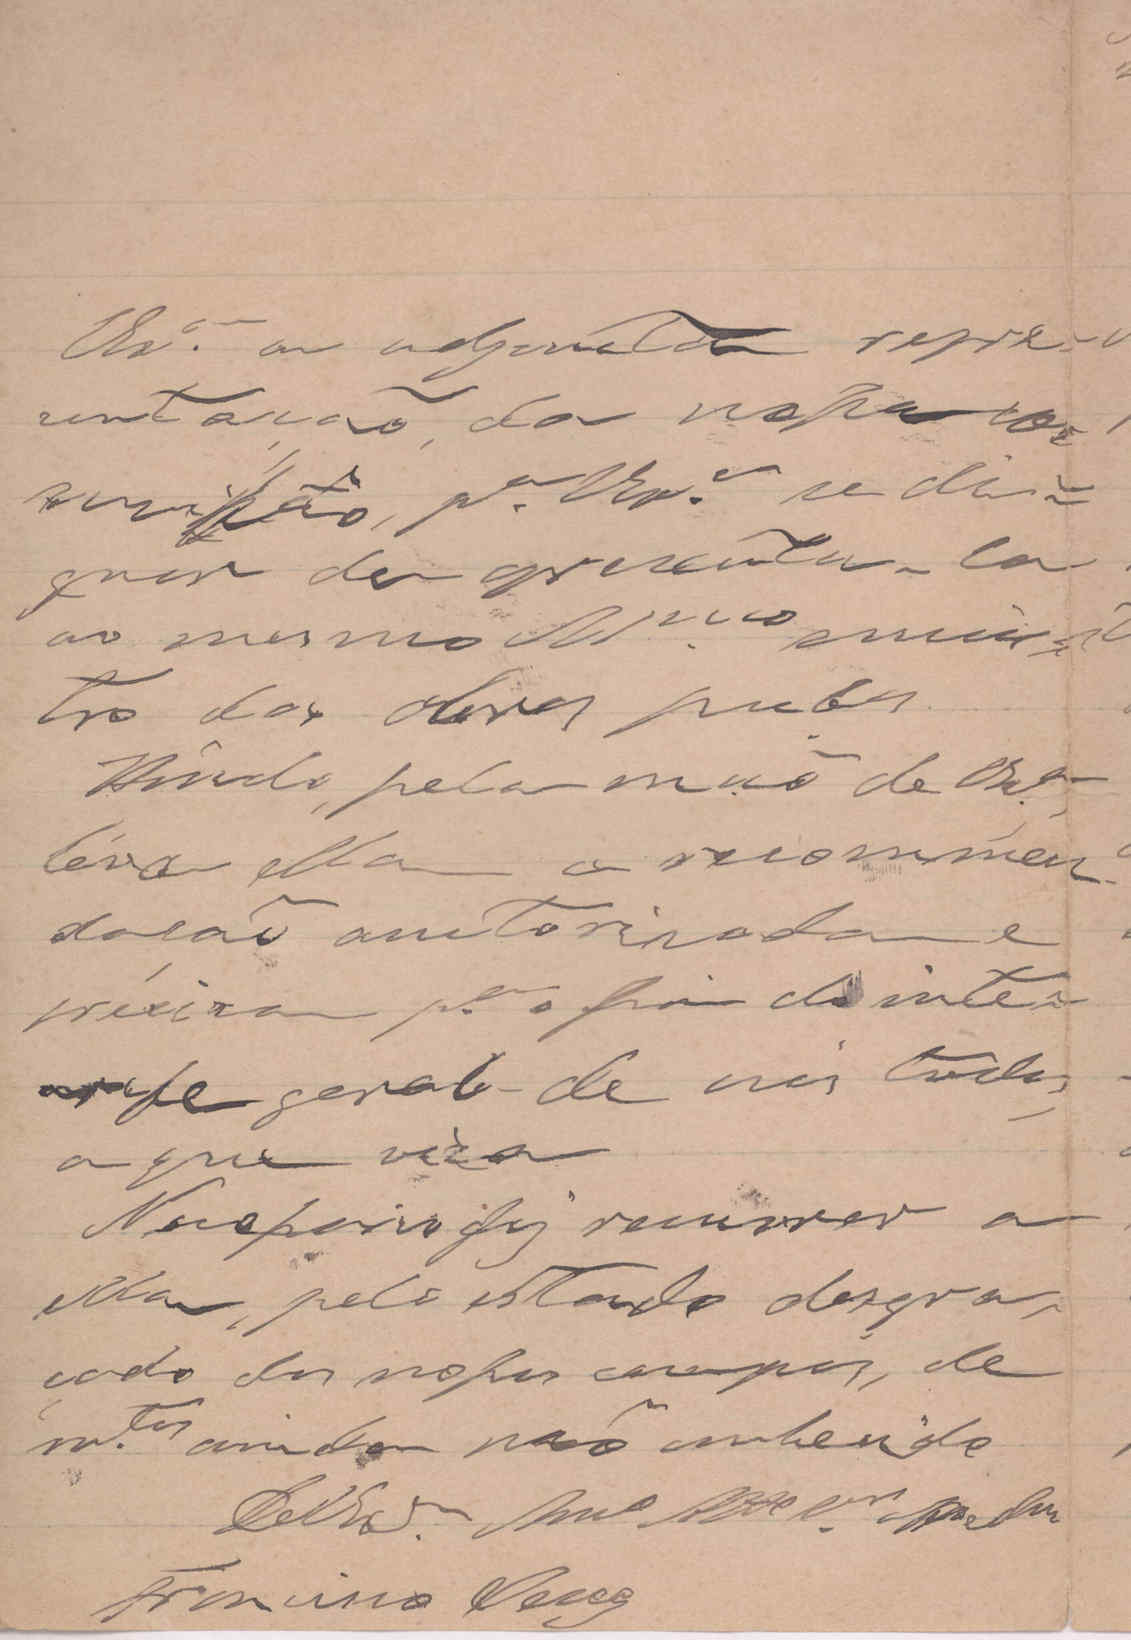 VEx.ª a adjunta repre-
sentação, da nossa co-
missão, p.ª VEx.ª se di-
gnar de apresenta-la
ao mesmo Ill.mo minis-
tro das obras pub.as
Hindo, pela maõ de VEx.ª,
léva ella a recommen-
dacaõ autorisada e
precisa p.ª o fim do inte-
resse geral de nós todos,
a que visa
Necessario foi recorrer a
ella, pelo estado desgra-
çado dos nossos campos, de
m.tos ainda naõ conhecido
De VEx.ª
Francisco